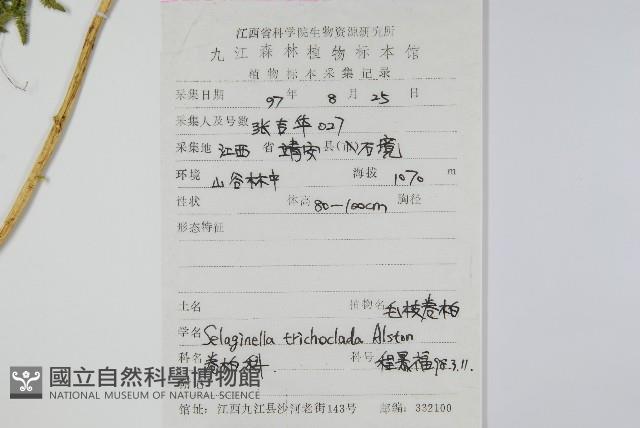 江西省科学院生物资源研究所
九江森林植物标本馆
植物标本采集记录
采集日期 97 年 8 月 25 日
采集人及号数 张吉华 027
采集地 江西 省 靖安 县(市) 石境
环境 山谷林中 海拔 1070 m
性状 体高 80—100cm 胸径
形态特征
土名 植物名 毛枝卷柏
学名 Selaginella trichoclada Alston
科名 卷柏科. 科号 程景福 98.3.11.
附记
國立自然科學博物館
NATIONAL MUSEUM OF NATURAL SCIENCE
馆址:江西九江县沙河老街143号 邮编:332100